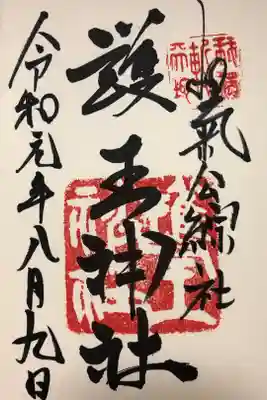 和氣公綜社
護王神社
令和元年八月九日